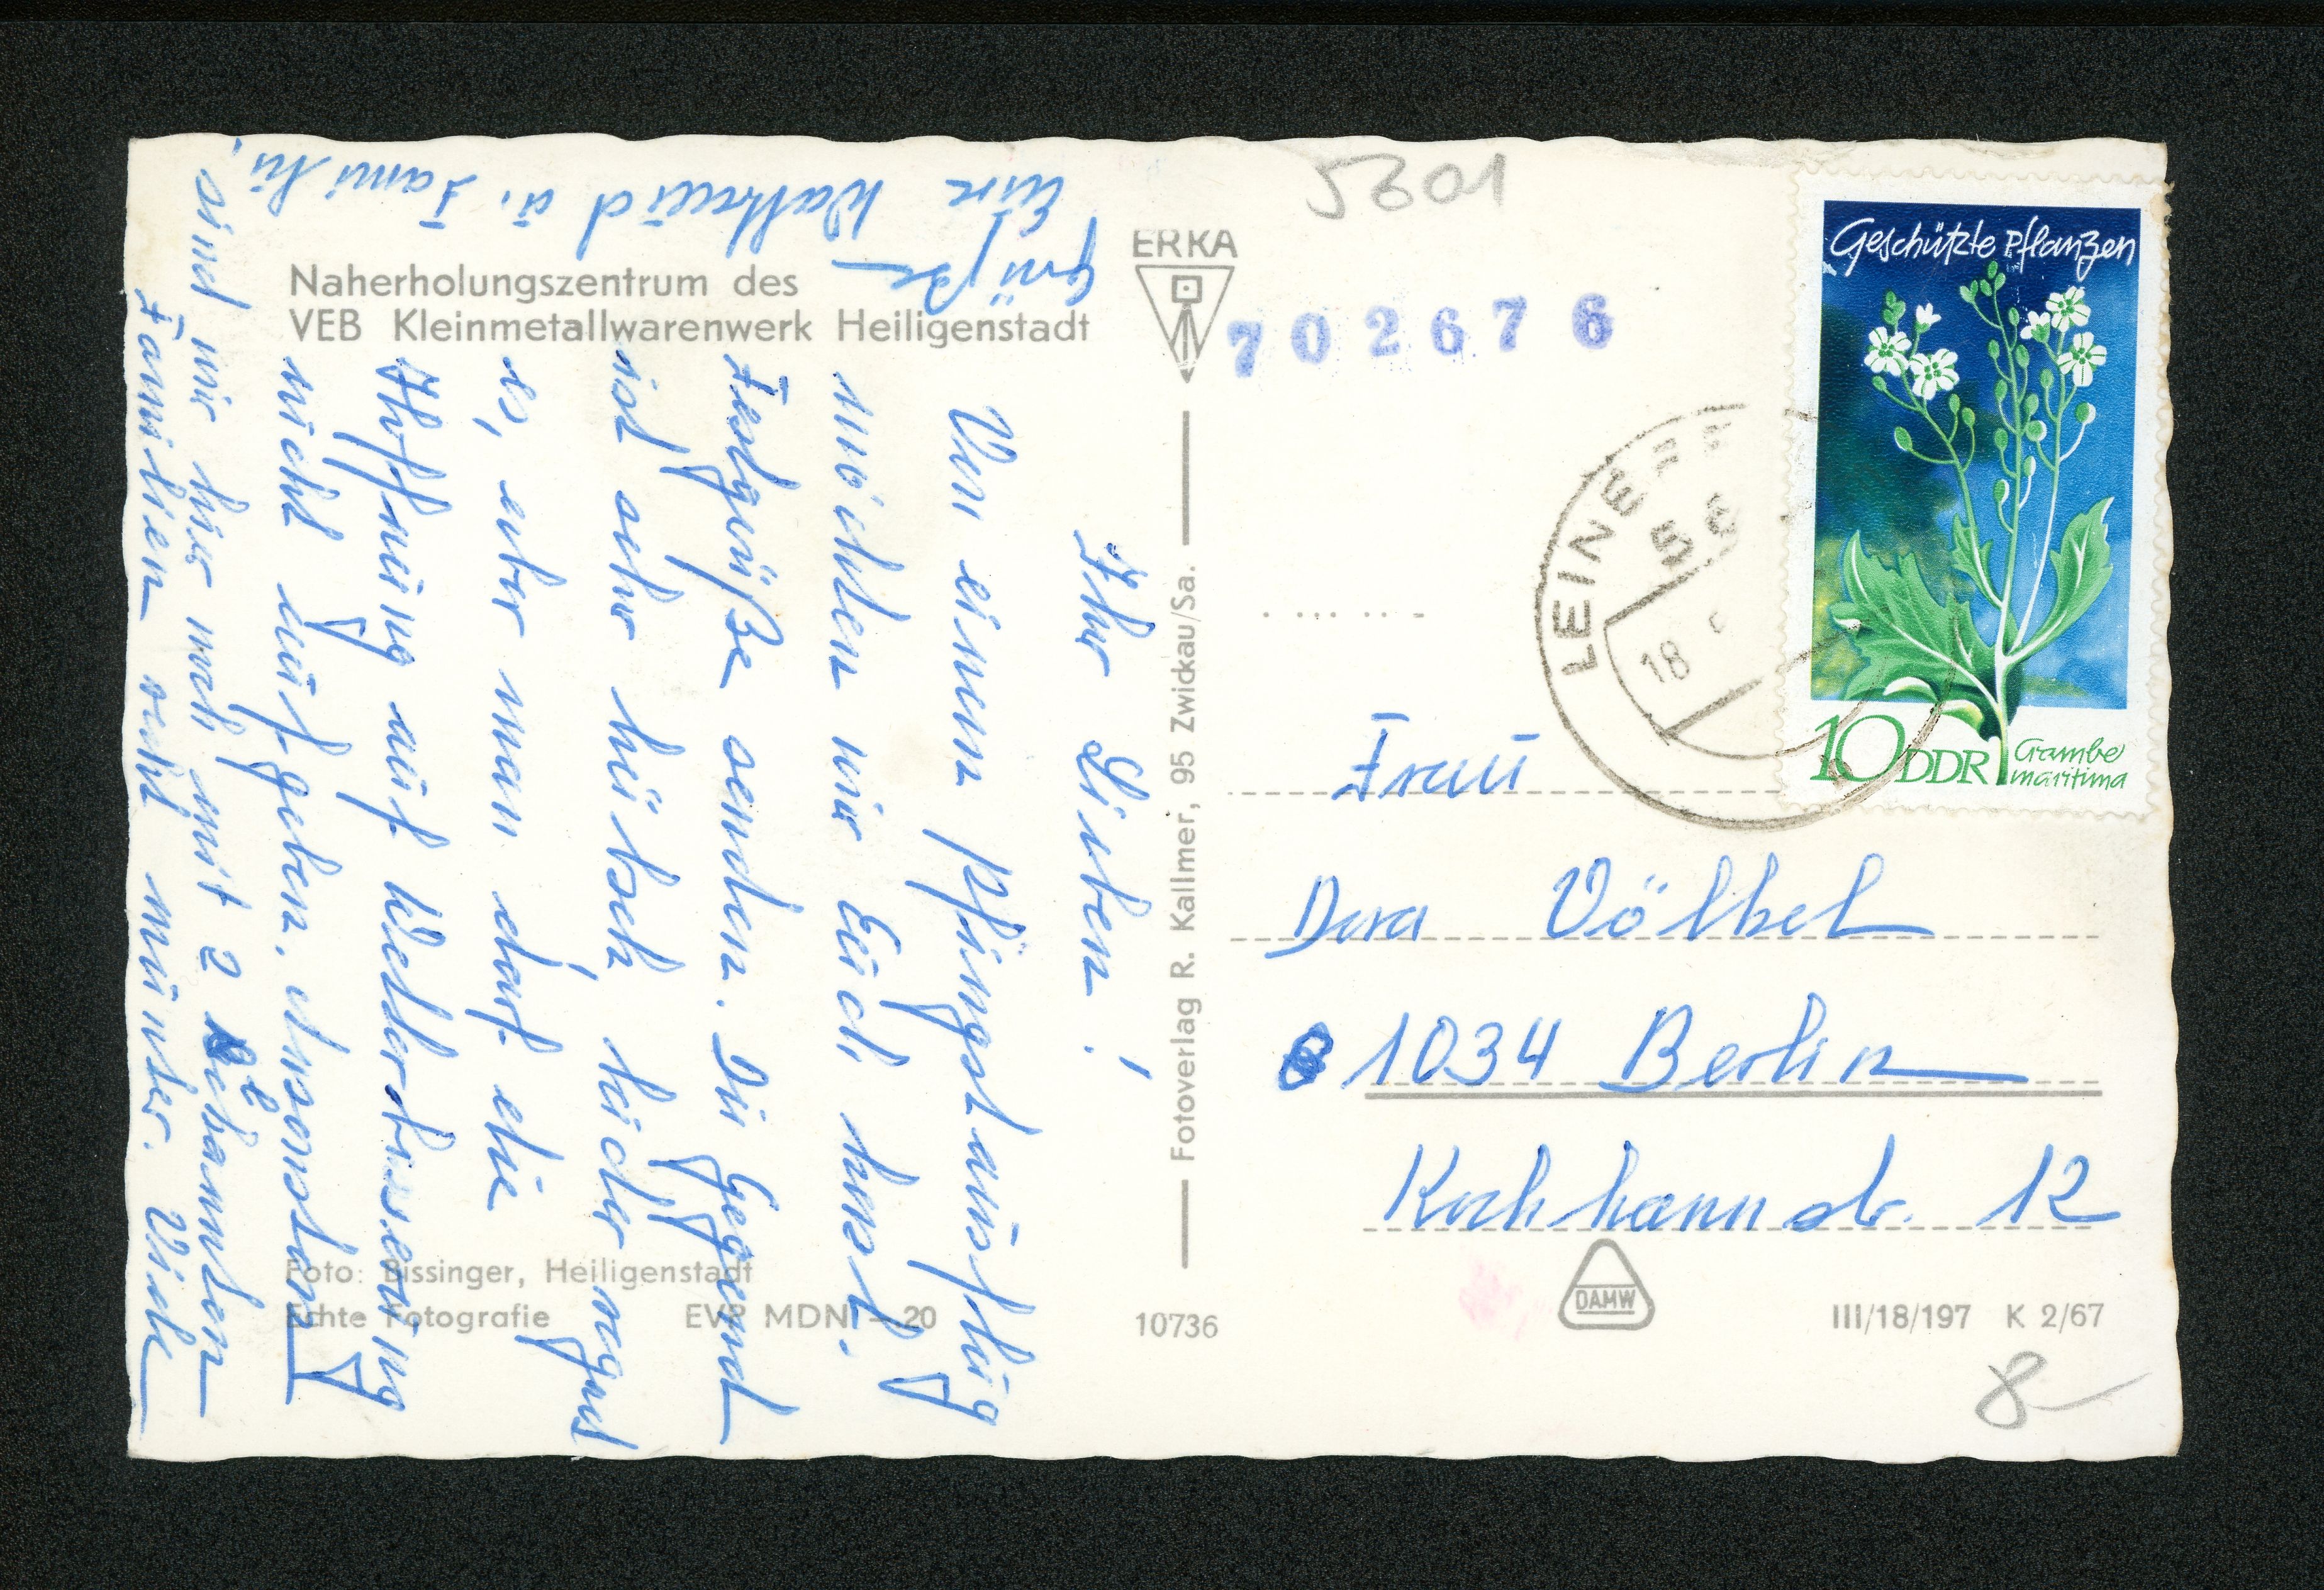 Naherholungszentrum des
VEB Kleinmetallwarenwerk Heiligenstadt
Ihr Lieben!
Von einem Pfingstausflug
möchten wir Euch herzl.
Festgrüße senden. Die Gegend
ist sehr hübsch, leider regnet
es, aber man darf die
Hoffnung auf Wetterbesserung
nicht aufgeben. Ansonsten
sind wir hier noch mit 2 bekannten
Familien recht munter. Viele
Grüße
Eure Waltraud u. Familie.
Foto: Bissinger, Heiligenstadt
Echte Fotografie EVP MDN –.20
ERKA
Fotoverlag R. Kallmer, 95 Zwickau/Sa.
10736
5301
702676
Geschützte Pflanzen
10 DDR Crambe
maritima
LEINE
56
18
Frau
Dora Völkel
1034 Berlin
Kochhannstr. 12
DAMW
III/18/197 K 2/67
8-